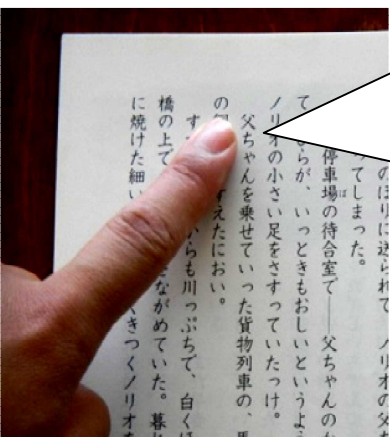 のぼりに送られて、ノリオの父
ってしまった。
停車場の待合室で――父ちゃんの
て らが、いっときもおしいというよう
ノリオの小さい足をさすっていたっけ。
父ちゃんを乗せていった貨物列車の、馬
の すえたにおい。
す らも川っぷちで、白く
橋の上で ながめていた。暮れ
に焼けた細い きつくノリオを